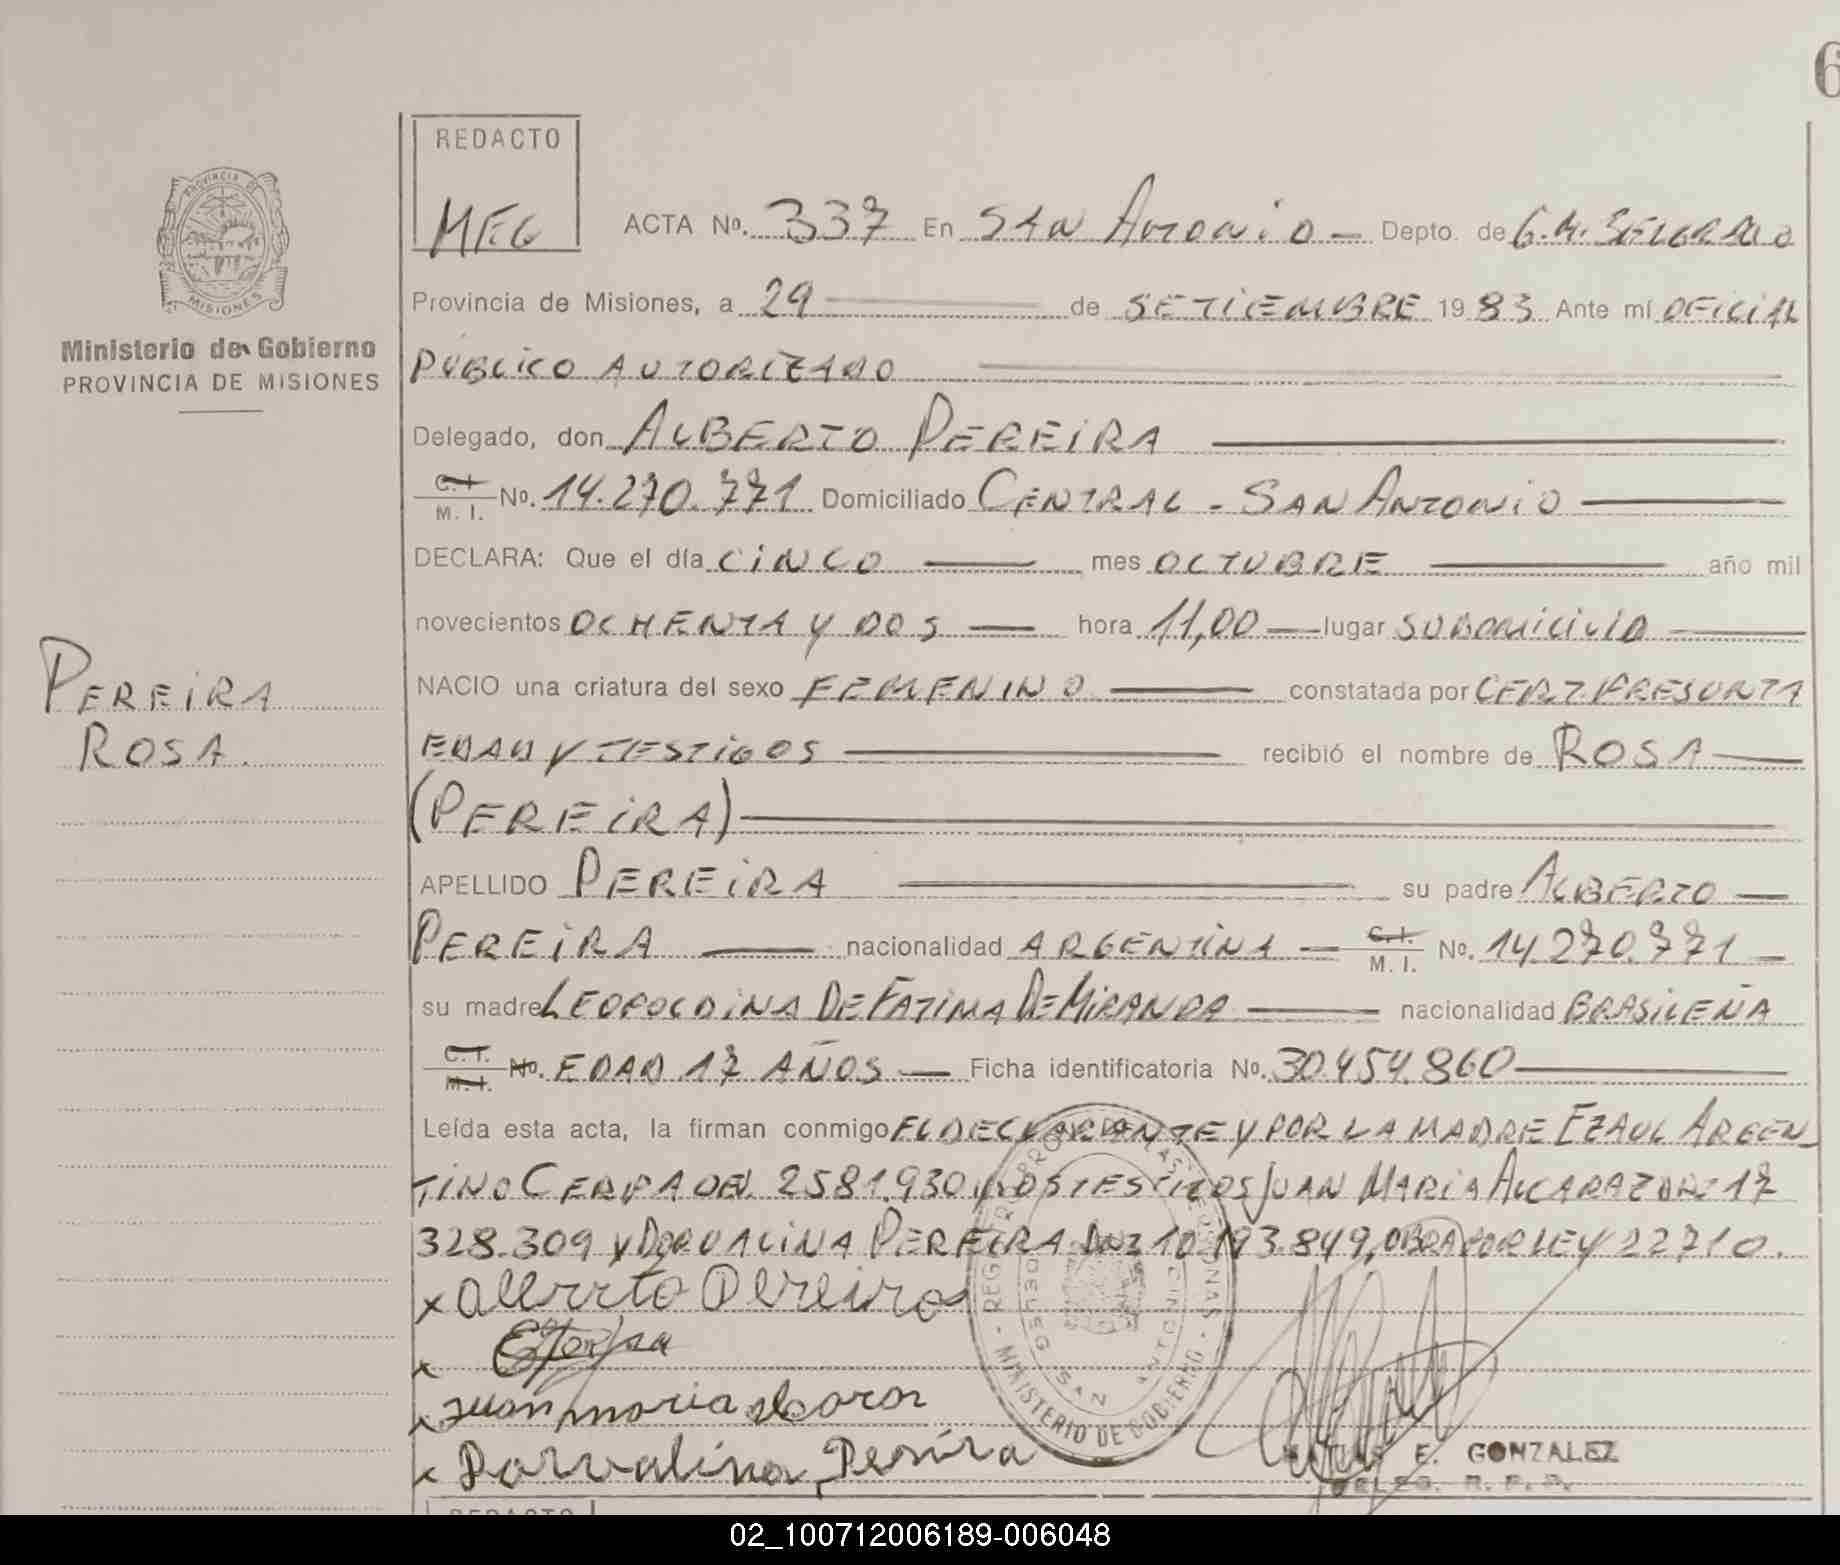 6
REDACTO
MEG
ACTA No. 337 En SAN ANTONIO Depto. de G.M. BELGRANO
PROVINCIA DE
MISIONES
Provincia de Misiones, a 29 de SETIEMBRE 1983 Ante mí OFICIAL
Ministerio de Gobierno
PROVINCIA DE MISIONES
PÚBLICO AUTORIZADO
Delegado, don ALBERTO PEREIRA
C. I. M. I. No. 14.270.771 Domiciliado CENTRAL - SAN ANTONIO
DECLARA: Que el día CINCO mes OCTUBRE año mil
novecientos OCHENTA Y DOS hora 11,00 lugar SU DOMICILIO
PEREIRA
ROSA.
NACIO una criatura del sexo FEMENINO constatada por CERT. PRESUNTA
EDAD Y TESTIGOS recibió el nombre de ROSA
(PEREIRA)
APELLIDO PEREIRA su padre ALBERTO
PEREIRA nacionalidad ARGENTINA C. I. M. I. No. 14.270.771
su madre LEOPOLDINA DE FATIMA DE MIRANDA nacionalidad BRASILEÑA
C. I. M. I. No. EDAD 17 AÑOS Ficha identificatoria No. 30.454.860
Leída esta acta, la firman conmigo EL DECLARANTE Y POR LA MADRE EZAUL ARGEN-
TINO CERPA 2581.930 Y LOS TESTIGOS JUAN MARIA ALCARAZ DNI 17
328.309 Y DORVALINA PEREIRA DNI 10.193.849, OBRA POR LEY 22710.
x Alberto Pereira
x
x Juan maria alcaraz
x Dorvalina Pereira
MINISTERIO DE GOBIERNO
SAN ANTONIO
E. GONZALEZ
DELEG. R. P. P.
REDACTO
02_100712006189-006048